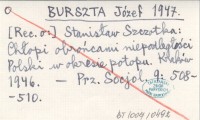 BURSZTA Józef 1947.
[Rec. o:] Stanisław Szczotka:
Chłopi obrońcami niepodległości
Polski w okresie potopu. Kraków
1946. — Prz. Socjol. 9: 508-
-510.